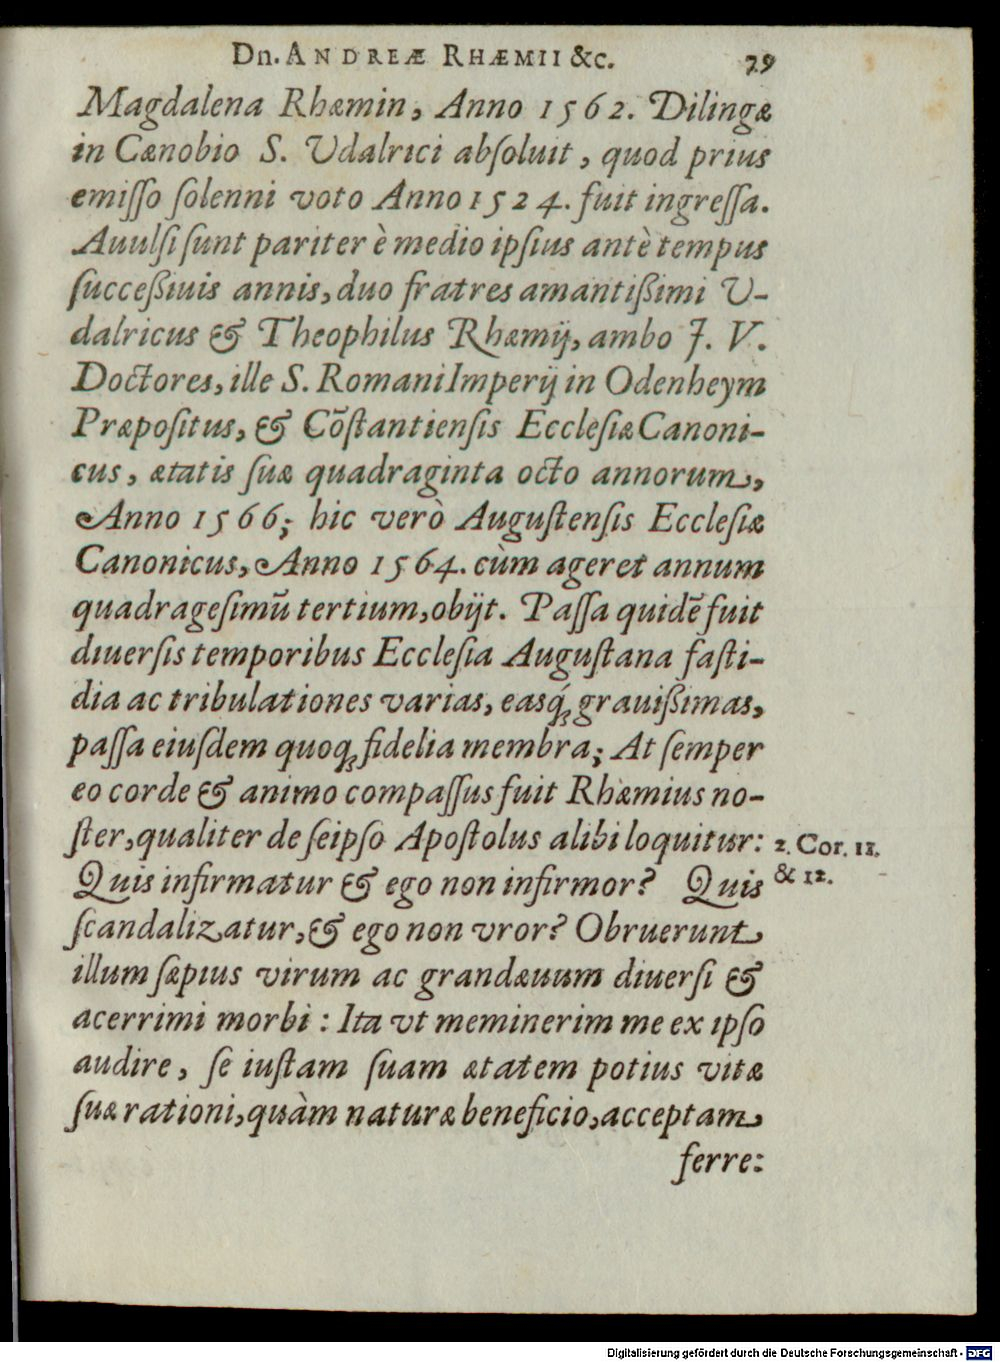 Dn. ANDREÆ RHÆMII &c. 79
Magdalena Rhæmin, Anno 1562. Dilingæ
in Cænobio S. Vdalrici abſoluit, quod prius
emiſſo ſolenni voto Anno 1524. fuit ingreſſa.
Auulſi ſunt pariter è medio ipſius antè tempus
ſucceßiuis annis, duo fratres amantißimi V-
dalricus & Theophilus Rhæmij, ambo J. V.
Doctores, ille S. Romani Imperij in Odenheym
Præpoſitus, & Cõſtantienſis Eccleſiæ Canoni-
cus, ætatis ſuæ quadraginta octo annorum,
Anno 1566; hic verò Auguſtenſis Eccleſiæ
Canonicus, Anno 1564. cùm ageret annum
quadrageſimũ tertium, obijt. Paſſa quidẽ fuit
diuerſis temporibus Eccleſia Auguſtana faſti-
dia ac tribulationes varias, easq́; grauißimas,
paſſa eiuſdem quoq; fidelia membra; At ſemper
eo corde & animo compaſſus fuit Rhæmius no-
ſter, qualiter de ſeipſo Apoſtolus alibi loquitur:
2. Cor. 11.
& 12.
Quis infirmatur & ego non infirmor? Quis
ſcandalizatur, & ego non vror? Obruerunt
illum ſæpius virum ac grandæuum diuerſi &
acerrimi morbi: Ita vt meminerim me ex ipſo
audire, ſe iuſtam ſuam ætatem potius vitæ
ſuæ rationi, quàm naturæ beneficio, acceptam
ferre:
Digitalisierung gefördert durch die Deutsche Forschungsgemeinschaft - DFG